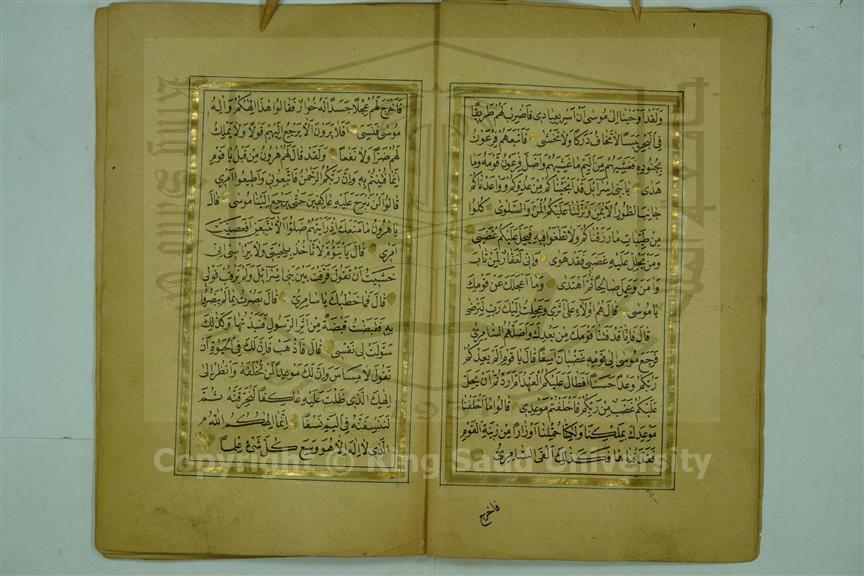 ولقد اوحينا الى موسى ان اسر بعبادي فاضرب لهم طريقا
في البحر يبسا لا تخاف دركا ولا تخشى فاتبعهم فرعون
بجنوده فغشيهم من اليم ما غشيهم واضل فرعون قومه وما
هدى يا بني اسرائل قد انجيناكم من عدوكم وواعدناكم
جانب الطور الايمن ونزلنا عليكم المن والسلوى كلوا
من طيبات ما رزقناكم ولا تطغوا فيه فيحل عليكم غضبي
ومن يحلل عليه غضبي فقد هوى واني لغفار لمن تاب
وامن وعمل صالحا ثم اهتدى وما اعجلك عن قومك
يا موسى قال هم اولاء على اثري وعجلت اليك رب لترضى
قال فانا قد فتنا قومك من بعدك واضلهم السامري
فرجع موسى الى قومه غضبان اسفا قال يا قوم الم يعدكم
ربكم وعدا حسنا افطال عليكم العهد ام اردتم ان يحل
عليكم غضب من ربكم فاخلفتم موعدي قالوا ما اخلفنا
موعدك بملكنا ولكنا حملنا اوزارا من زينة القوم
فقذفناها فكذلك القى السامري
فاخرج
فاخرج لهم عجلا جسدا له خوار فقالوا هذا الهكم واله
موسى فنسي افلا يرون الا يرجع اليهم قولا ولا يملك
لهم ضرا ولا نفعا ولقد قال لهم هرون من قبل يا قوم
انما فتنتم به وان ربكم الرحمن فاتبعوني واطيعوا امري
قالوا لن نبرح عليه عاكفين حتى يرجع الينا موسى قال
يا هرون ما منعك اذ رايتهم ضلوا الا تتبعن افعصيت
امري قال يا ابنؤم لا تاخذ بلحيتي ولا براسي اني
خشيت ان تقول فرقت بين بني اسرائل ولم ترقب قولي
قال فما خطبك يا سامري قال بصرت بما لم يبصروا
به فقبضت قبضة من اثر الرسول فنبذتها وكذلك
سولت لي نفسي قال فاذهب فان لك في الحيوة ان
تقول لا مساس وان لك موعدا لن تخلفه وانظر الى
الهك الذي ظلت عليه عاكفا لنحرقنه ثم
لننسفنه في اليم نسفا انما الهكم الله
الذي لا اله الا هو وسع كل شيء علما
Copyright © King Saud University